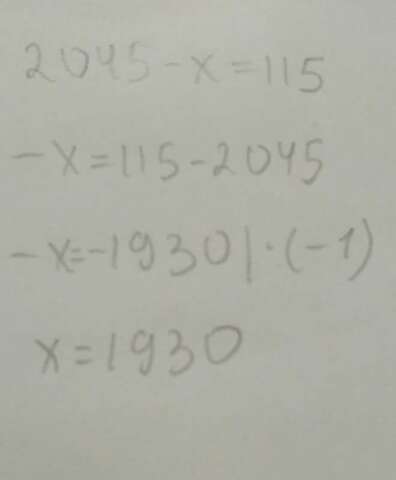 2045-x=115
-x=115-2045
-x=-1930|·(-1)
x=1930